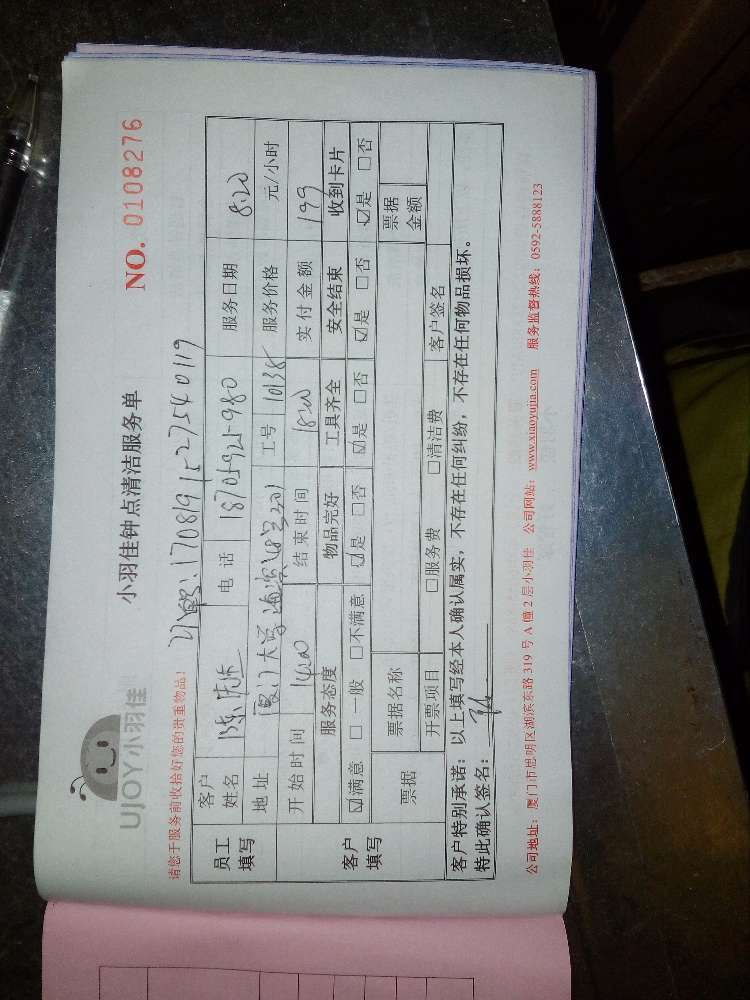 UJOY小羽佳
小羽佳钟点清洁服务单
NO. 0108276
请您于服务前收拾好您的贵重物品！
170819152754 0119
员工填写
客户姓名 陈先生 电话 18705921-980 服务日期 8.20
地址 厦门大学海滨 工号 10138 服务价格 元/小时
开始时间 14:00 结束时间 18:00 实付金额 199
客户填写
服务态度 物品完好 工具齐全 安全结束 收到卡片
☑满意 □一般 □不满意 ☑是 □否 ☑是 □否 ☑是 □否 ☑是 □否
票据
票据名称 票据金额
开票项目 □服务费 □清洁费 客户签名
客户特别承诺：以上填写经本人确认属实，不存在任何纠纷，不存在任何物品损坏。
特此确认签名：
公司地址：厦门市思明区湖滨东路 319 号 A 幢 2 层小羽佳 公司网站：www.xiaoyujia.com 服务监督热线：0592-5888123